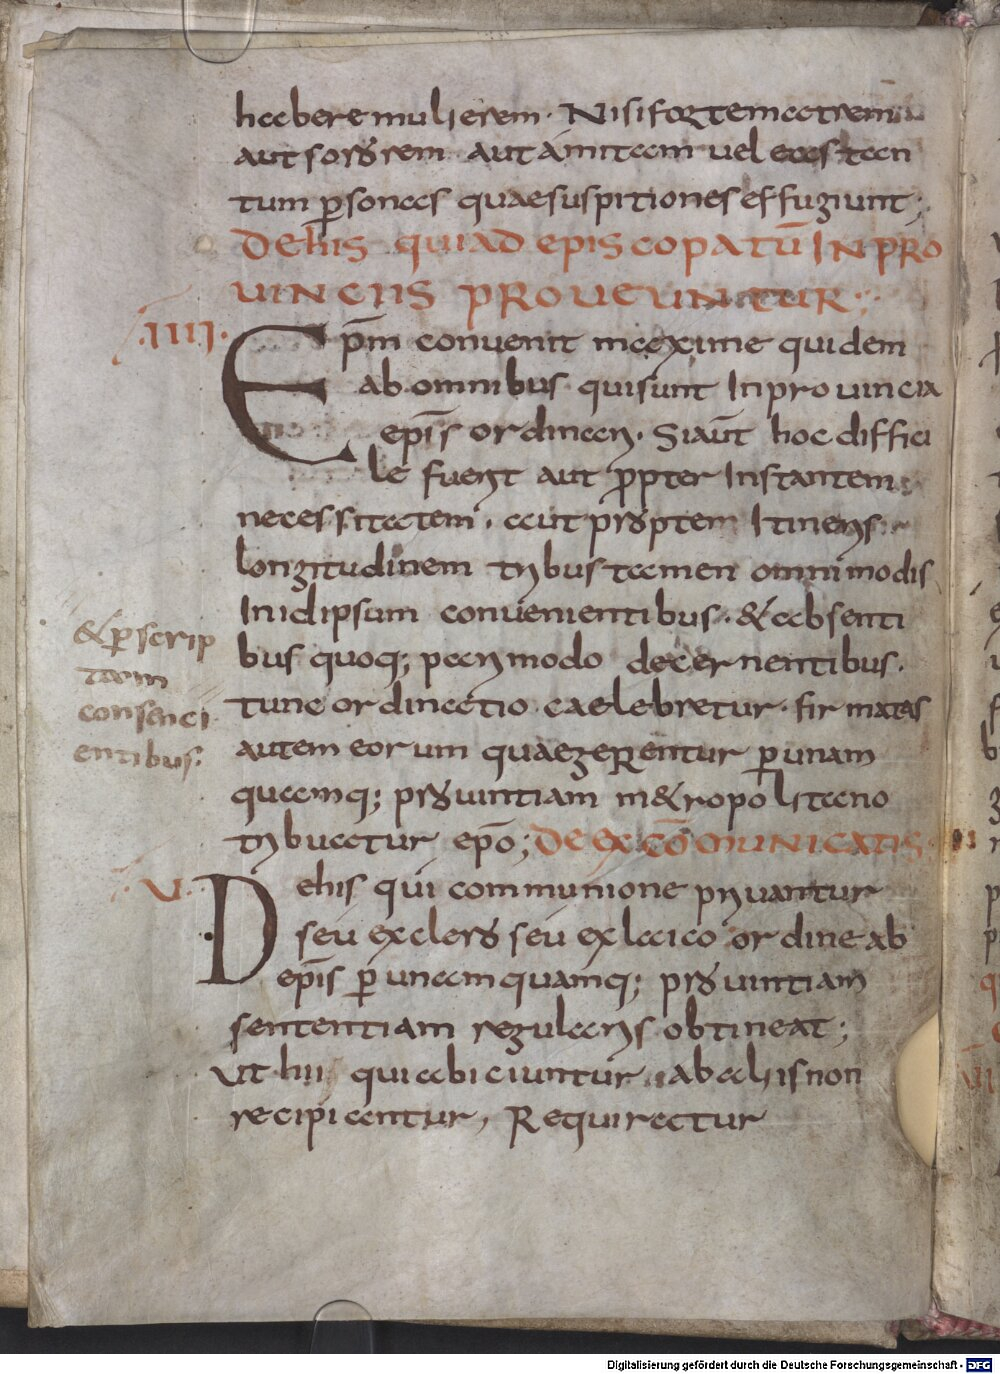 habere mulierem. Nisi forte matrem
aut sororem aut amitam vel eas tan
tum p̄sonas quae suspitiones effugiunt;
De his qui ad episcopatū In pro
uinciis proueuntur;
.IIII.
Ep̄m conuenit maxime quidem
ab omnibus qui sunt In prouincia
ep̄is ordinari. Si aūt hoc diffici
le fuerit aut ꝓpter Instantem
necessitatem. aut propter Itineris
longitudinem tribus tamen omnimodis
In idipsum conuenientibus. & absenti
bus quoq; pari modo decernentibus.
&ꝑ scrip
tam
consenci
entibus.
tunc ordinatio caelebretur. firmatas
autem eorum quae gerentur ꝑ unam
quamq; prouintiam m&ropolitano
tribuatur ep̄o; De excōmunicatis
.V.
De his qui communione priuantur
seu ex clero seu ex laico ordine ab
ep̄is ꝑ unamquamq; prouintiam
sententiam regularis obtineat;
Ut hii qui abiciuntur ab aliis non
recipiantur, Requiratur
Digitalisierung gefördert durch die Deutsche Forschungsgemeinschaft - DFG